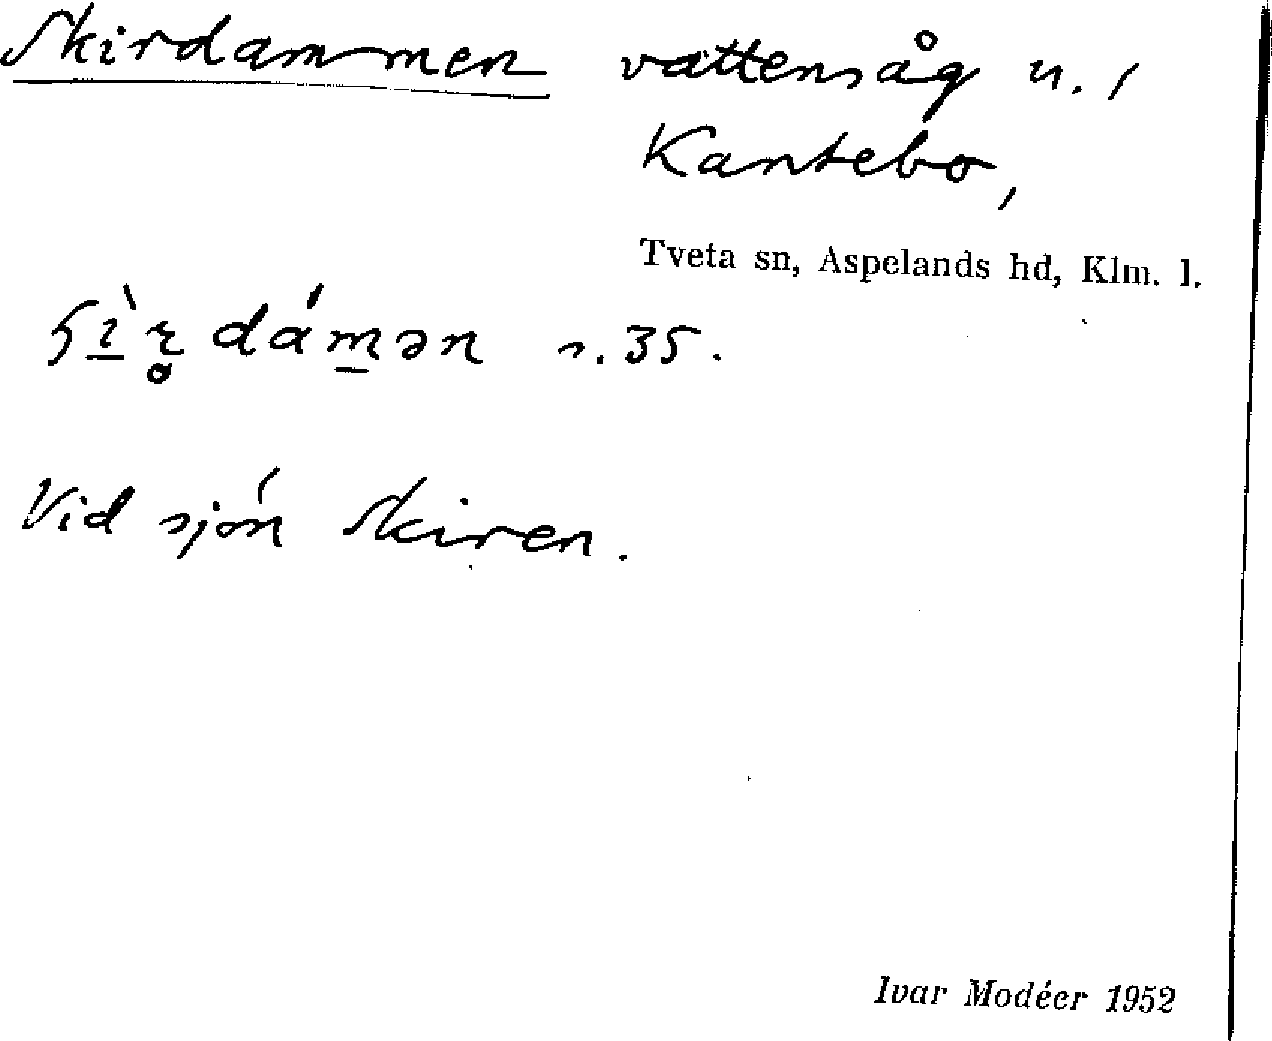 Skirdammen vattensåg u. /
Kantebo,
Tveta sn, Aspelands hd, Klm. l.
s. 35.
Vid sjön Skiren.
Ivar Modéer 1952